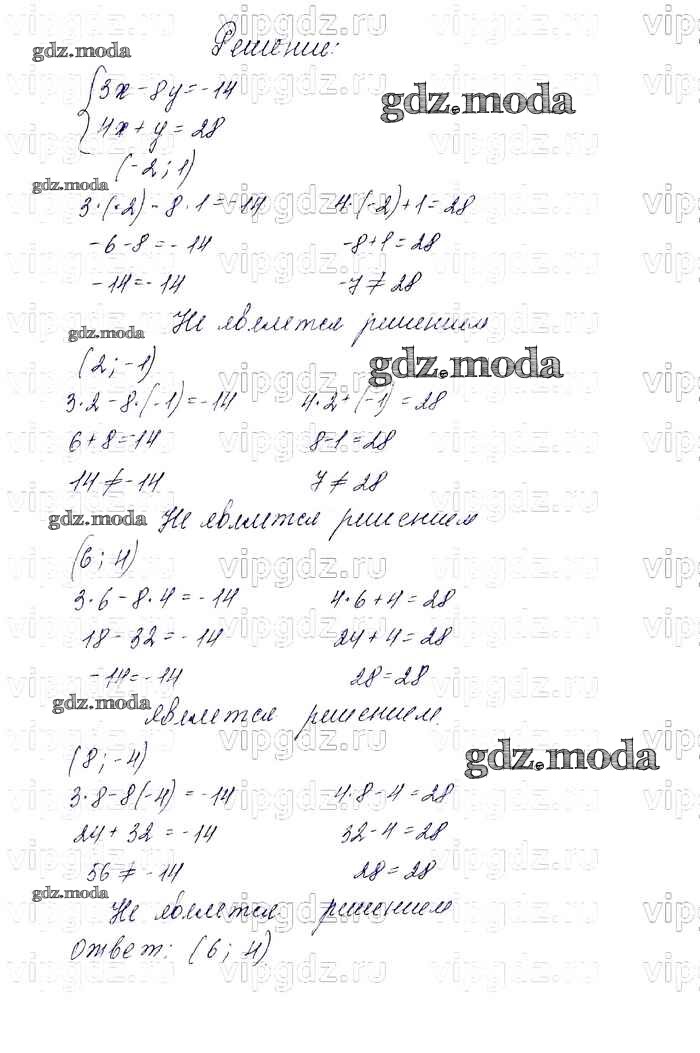 Решение:
gdz.moda
{3x - 8y = -14
4x + y = 28
gdz.moda
(-2; 1)
gdz.moda
3·(-2) - 8·1 = -14 4·(-2) + 1 = 28
-6 - 8 = -14 -8 + 1 = 28
-14 = -14 -7 ≠ 28
Не является решением
gdz.moda
(2; -1)
gdz.moda
3·2 - 8·(-1) = -14 4·2 + (-1) = 28
6 + 8 = -14 8 - 1 = 28
14 ≠ -14 7 ≠ 28
gdz.moda Не является решением
(6; 4)
3·6 - 8·4 = -14 4·6 + 4 = 28
18 - 32 = -14 24 + 4 = 28
-14 = -14 28 = 28
gdz.moda
является решением.
(8; -4)
gdz.moda
3·8 - 8(-4) = -14 4·8 - 4 = 28
24 + 32 = -14 32 - 4 = 28
56 ≠ -14 28 = 28
gdz.moda
Не является решением
Ответ: (6; 4)
vipgdz.ru